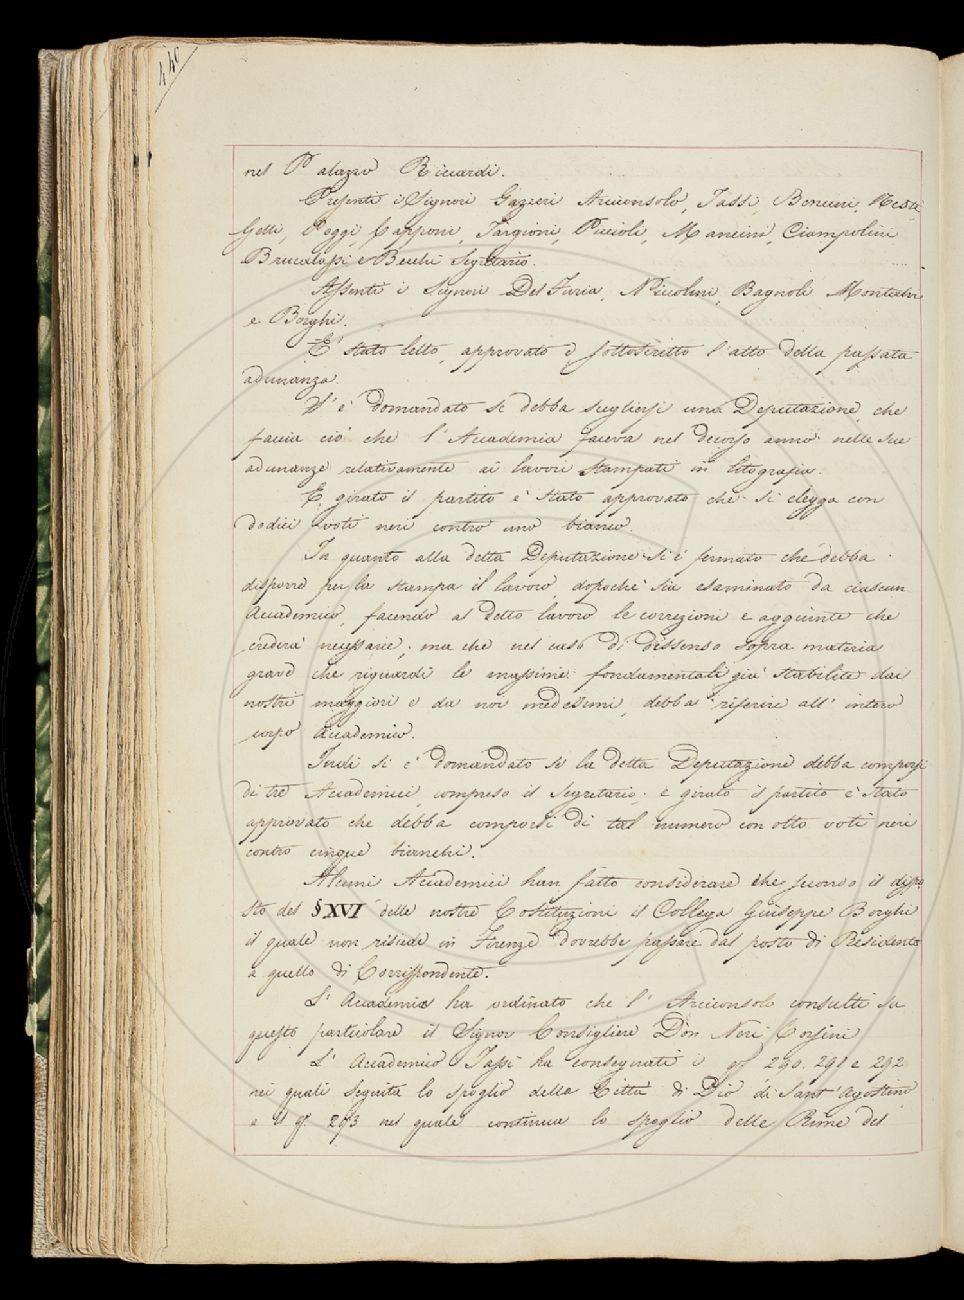 440
nel Palazzo Riccardi.
Presenti i Signori Gazzeri Arciconsolo, Tassi, Bencini, Nesti,
Gelli, Poggi, Capponi, Targioni, Piccioli, Mancini, Ciampolini
Brucalassi e Becchi Segretario.
Assenti i Signori Del Furia, Niccolini, Bagnoli Montalvi
e Borghi.
E' stato letto, approvato e sottoscritto l'atto della passata
adunanza.
S' è domandato se debba scegliersi una Deputazione, che
faccia ciò che l'Accademia faceva nel decorso anno nelle sue
adunanze relativamente ai lavori stampati in litografia.
E, girato il partito è stato approvato che si elegga con
dodici voti neri contro uno bianco.
In quanto alla detta Deputazione si è fermato che debba
disporre per la stampa il lavoro, dopoché sia esaminato da ciascun
Accademico, facendo al detto lavoro le correzioni e aggiunte che
crederà necessarie; ma che nel caso di dissenso sopra materia
grave che riguardi le massime fondamentali già stabilite dai
nostri maggiori e da noi medesimi, debba riferire all' intero
corpo Accademico.
Indi si è domandato se la detta Deputazione debba comporsi
di tre Accademici, compreso il Segretario; e girato il partito è stato
approvato che debba comporsi di tal numero con otto voti neri
contro cinque bianchi.
Alcuni Accademici han fatto considerare che secondo il dispo
sto del § XVI delle nostre Costituzioni il Collega Giuseppe Borghi
il quale non risiede in Firenze dovrebbe passare dal posto di Residente
a quello di Corrispondente.
L' Accademia ha ordinato che l' Arciconsolo consulti su
questo particolare il Signor Consigliere Don Neri Corsini
L' Accademico Tassi ha consegnati i qf 290. 291 e 292
nei quali seguita lo spoglio della Città di Dio di Sant' Agostino
e il qf. 293 nel quale continua lo spoglio delle Rime del